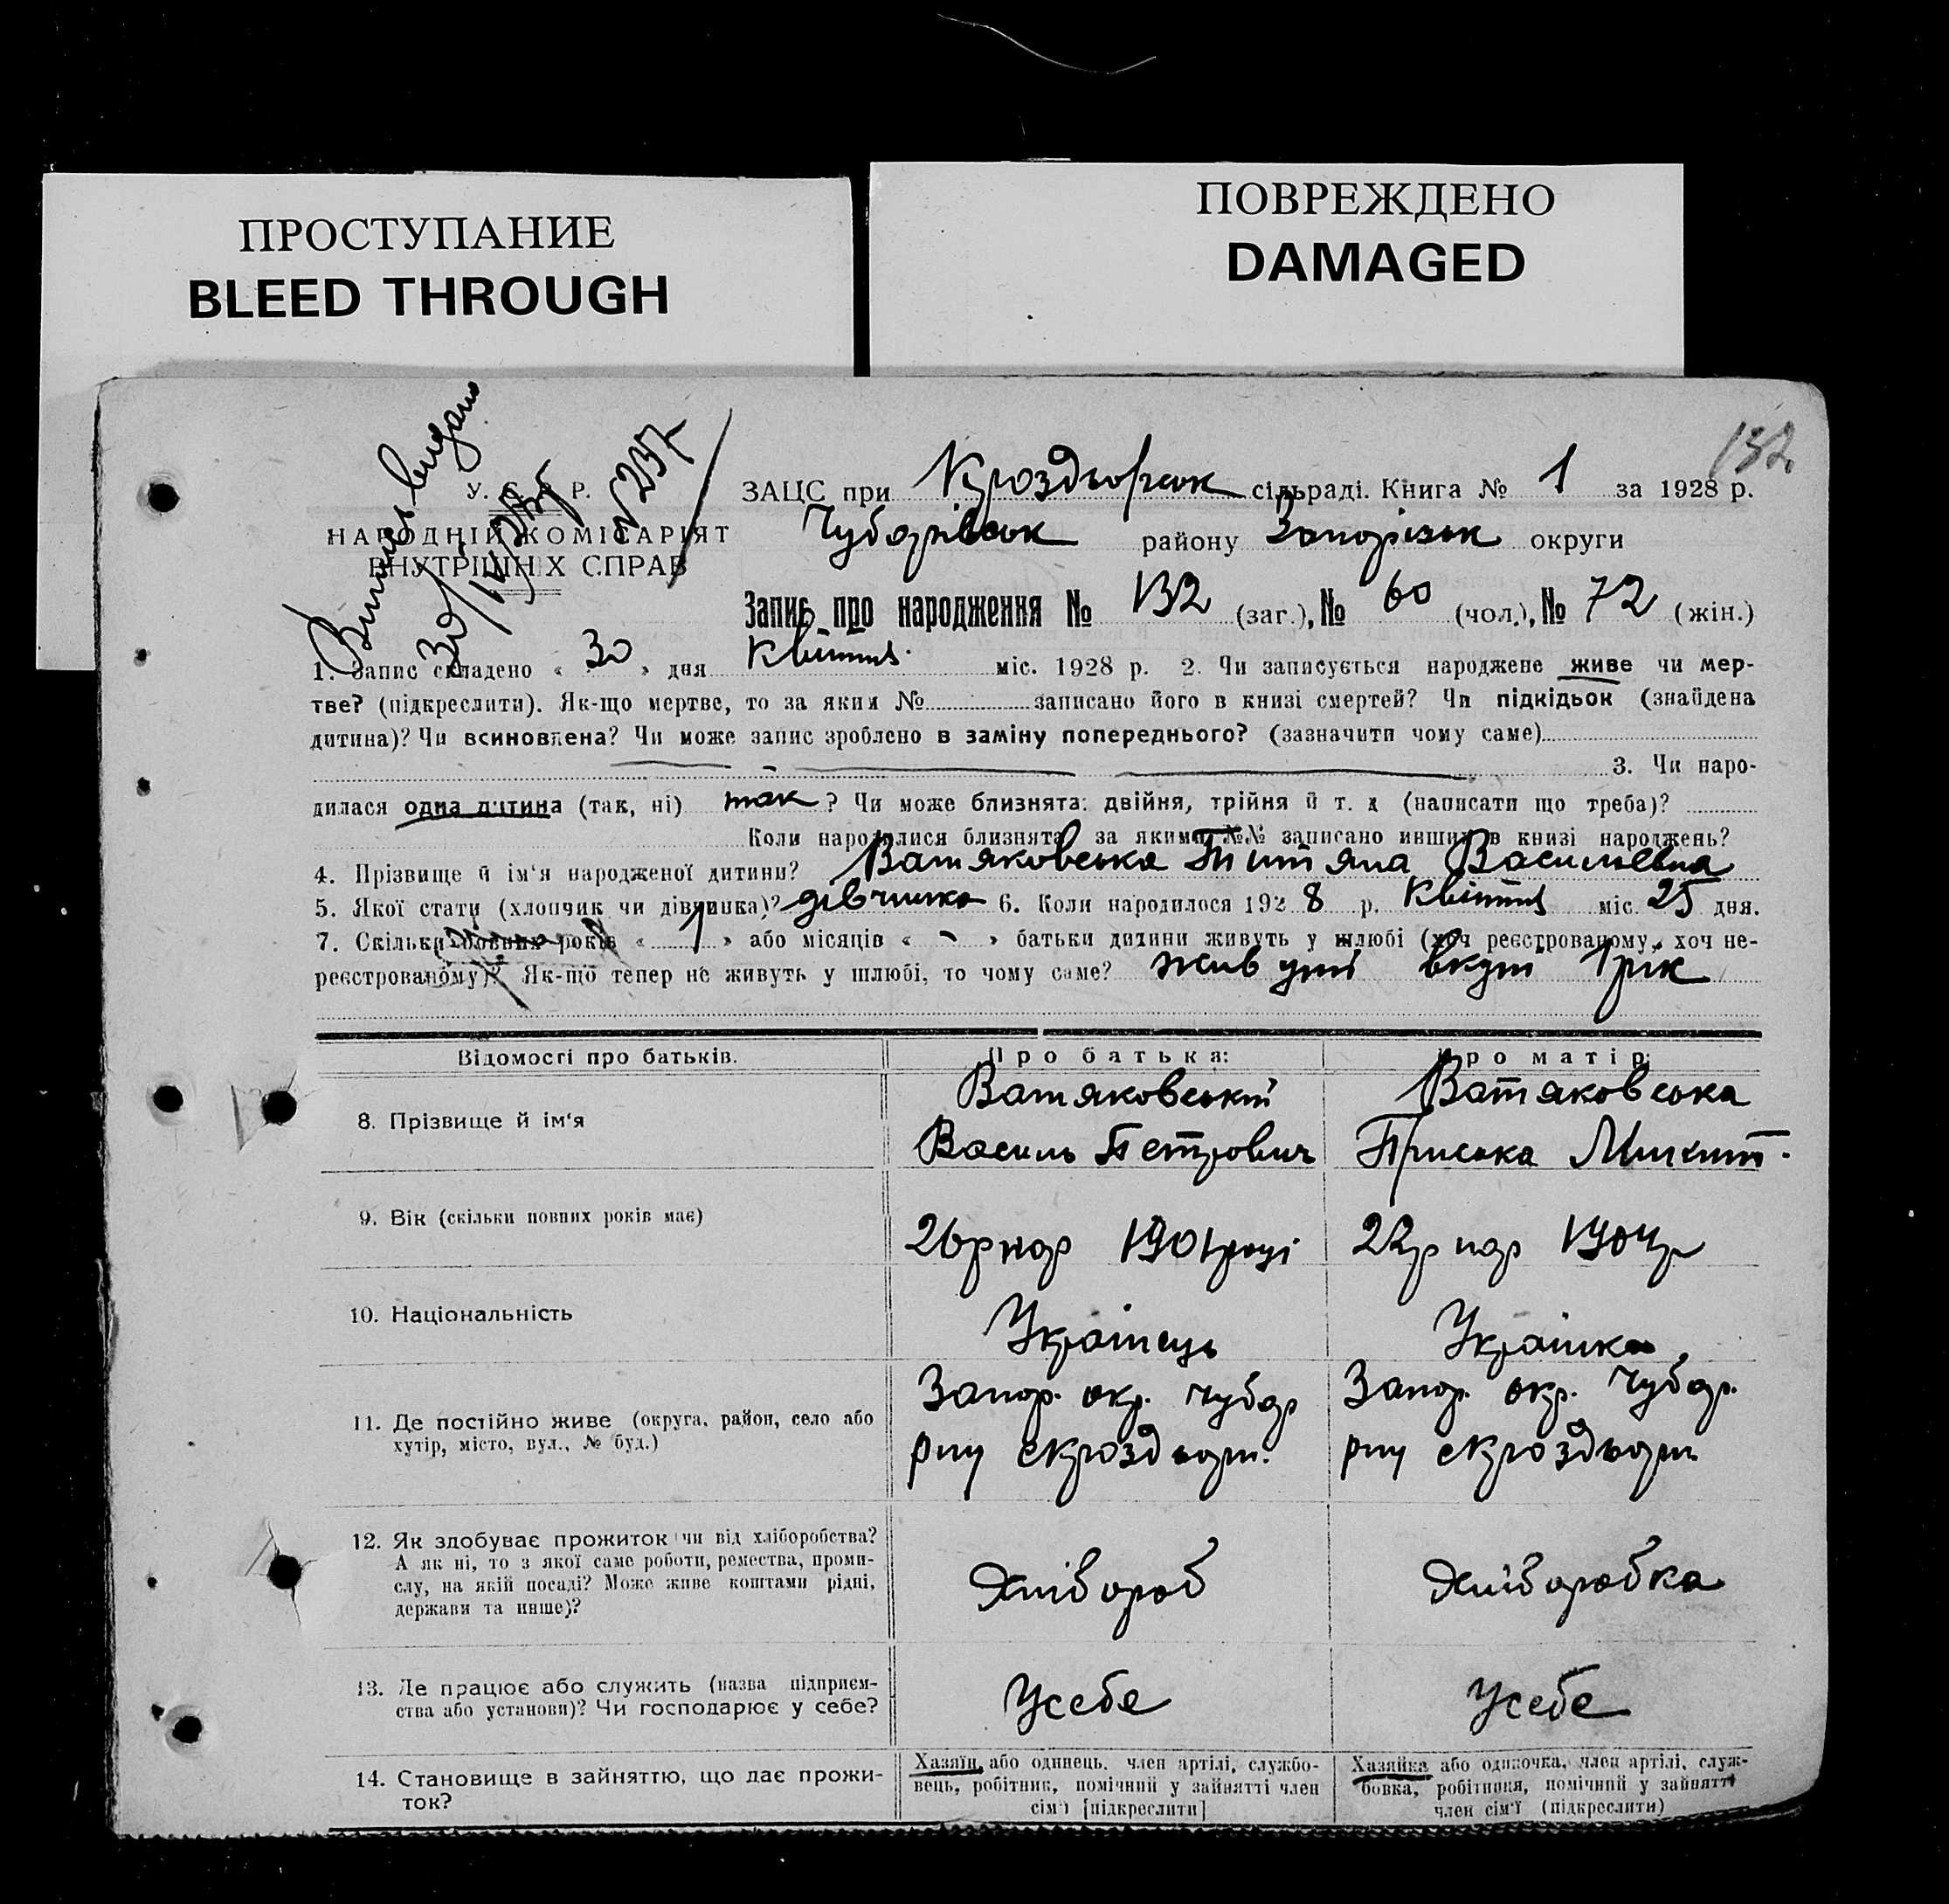 ПРОСТУПАНИЕ
BLEED THROUGH
ПОВРЕЖДЕНО
DAMAGED
132
Витяг видано
30/
№ 237
У. С. Р. Р.
НАРОДНІЙ КОМІСАРІЯТ
ВНУТРІШНІХ СПРАВ
ЗАЦС при сільраді. Книга № 1 за 1928 р.
Чубарівськ району Запорізьк округи
Запис про народження № 132 (заг.), № 60 (чол.), № 72 (жін.)
1. Запис складено « 30 » дня Квітня міс. 1928 р. 2. Чи записується народжене живе чи мер-
тве? (підкреслити). Як-що мертве, то за яким № записано його в книзі смертей? Чи підкідьок (знайдена
дитина)? Чи всиновлена? Чи може запис зроблено в заміну попереднього? (зазначити чому саме)
3. Чи наро-
дилася одна дитина (так, ні) так ? Чи може близнята: двійня, трійня й т. д (написати що треба)?
Коли народилися близнята, за якими №№ записано инших в книзі народжень?
4. Прізвище й ім'я народженої дитини? Ватяковська Титяна Васильевна
5. Якої стати (хлопчик чи дівчинка)? дівчинка 6. Коли народилося 1928 р. Квітня міс. 25 дня.
7. Скільки повних років « 1 » або місяців « - » батьки дитини живуть у шлюбі (хоч реєстрованому, хоч не-
реєстрованому)? Як-що тепер не живуть у шлюбі, то чому саме? вкупі 1 рік
Відомості про батьків.
Про батька:
Про матір:
8. Прізвище й ім'я
Ватяковський
Василь Петрович
Ватяковська
Приська Микит.
9. Вік (скільки повних років має)
26р нар 1901 році
22р нар 1904р
10. Національність
Українець
Українка
11. Де постійно живе (округа, район, село або
хутір, місто, вул., № буд.)
Запор. окр. Чубар
рну
Запор. окр. Чубар.
рну
12. Як здобуває прожиток (чи від хліборобства?
А як ні, то з якої саме роботи, ремества, проми-
слу, на якій посаді? Може живе коштами рідні,
держави та инше)?
Хлібороб
Хліборобка
13. Де працює або служить (назва підприєм-
ства або установи)? Чи господарює у себе?
Усебе
Усебе
14. Становище в зайняттю, що дає прожи-
ток?
Хазяїн, або одинець, член артілі, службо-
вець, робітник, помічний у зайнятті член
сім'ї [підкреслити]
Хазяйка або одиночка, член артілі, служ-
бовка, робітниця, помічний у зайнятті
член сім'ї (підкреслити)